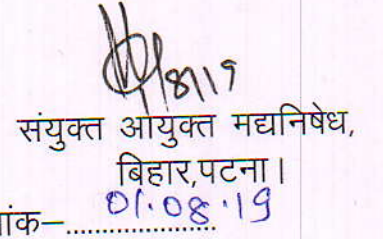 1/8/19
संयुक्त आयुक्त मद्यनिषेध,
बिहार,पटना।
नांक–.................... 01.08.19